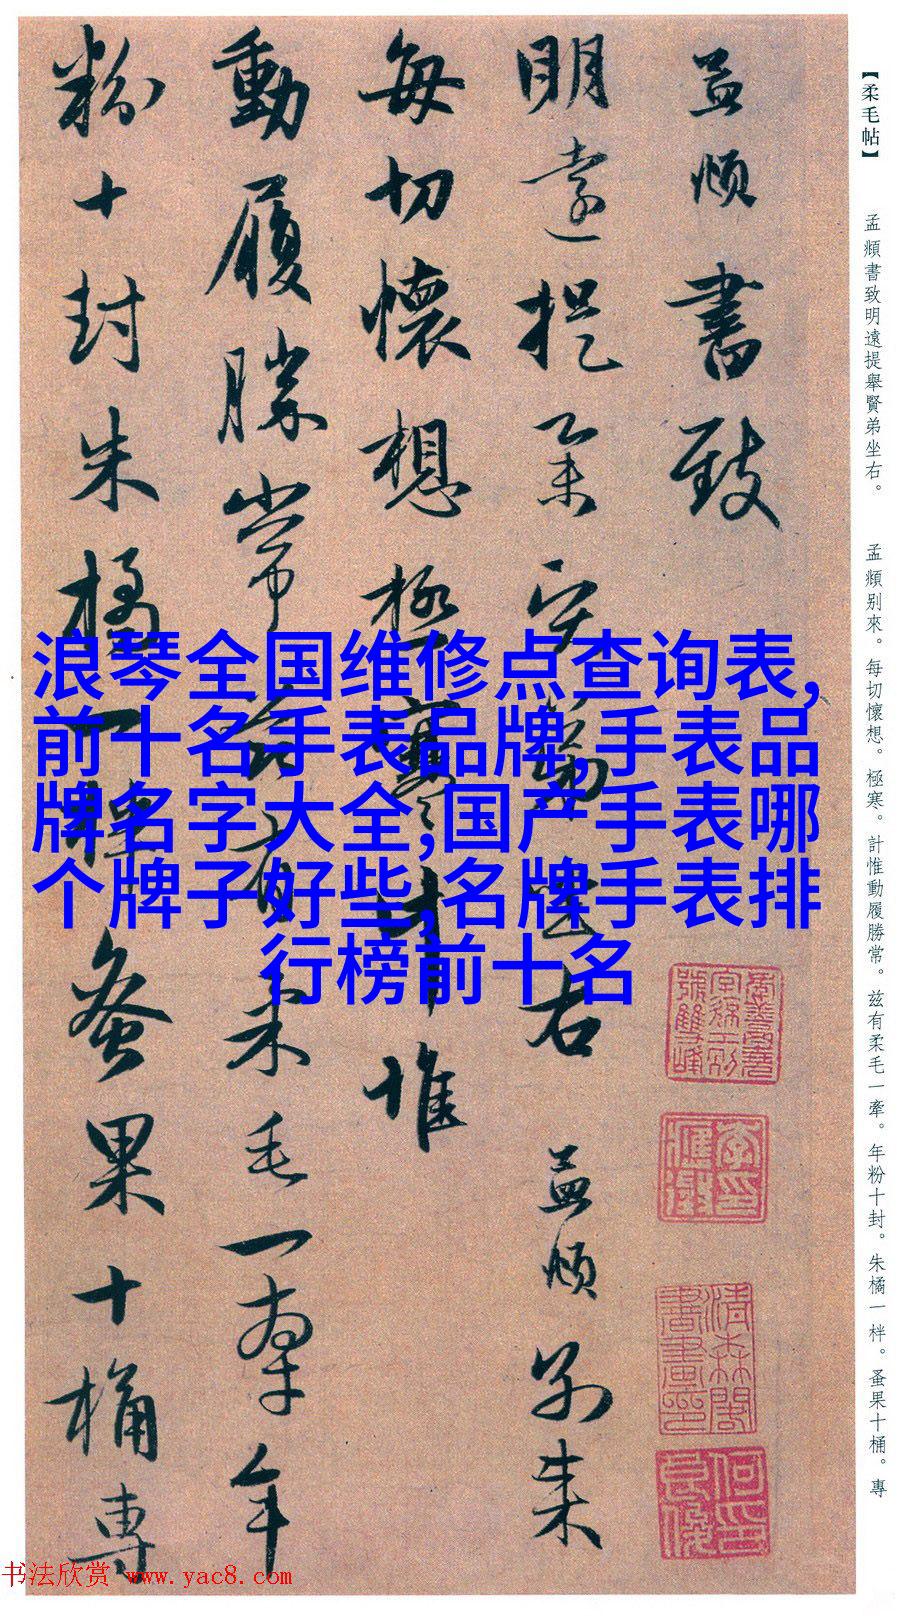 【柔毛帖】 孟頫書致明遠提舉賢弟坐右。 孟頫别來。每切懷想。極寒。計惟動履勝常。兹有柔毛一牽。年粉十封。朱橘一柈。蚤果十桶。專
孟頫書致
明遠提舉賢弟坐右 孟頫別來
每切懷想極寒計惟
動履勝常茲有柔毛一牽年
粉十封朱橘一柈蚤果十桶專
浪琴全国维修点查询表,
前十名手表品牌,手表品
牌名字大全,国产手表哪
个牌子好些,名牌手表排
行榜前十名
书法欣赏 www.yac8.com